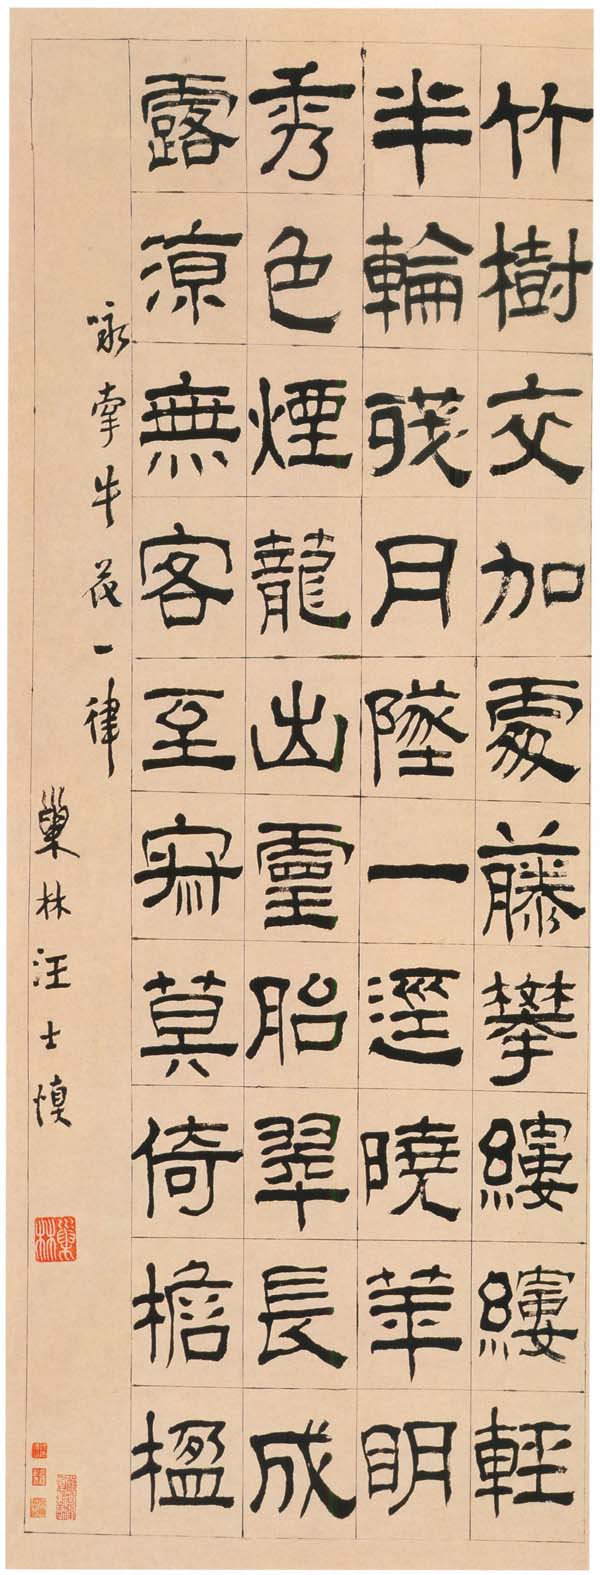 竹樹交加處藤攀縷縷輕
半輪殘月墜一逕曉華眀
秀色煙蘢出靈胎翠長成
露涼無客至寂莫倚檐楹
咏牽牛花一律
巢林汪士慎
巢林